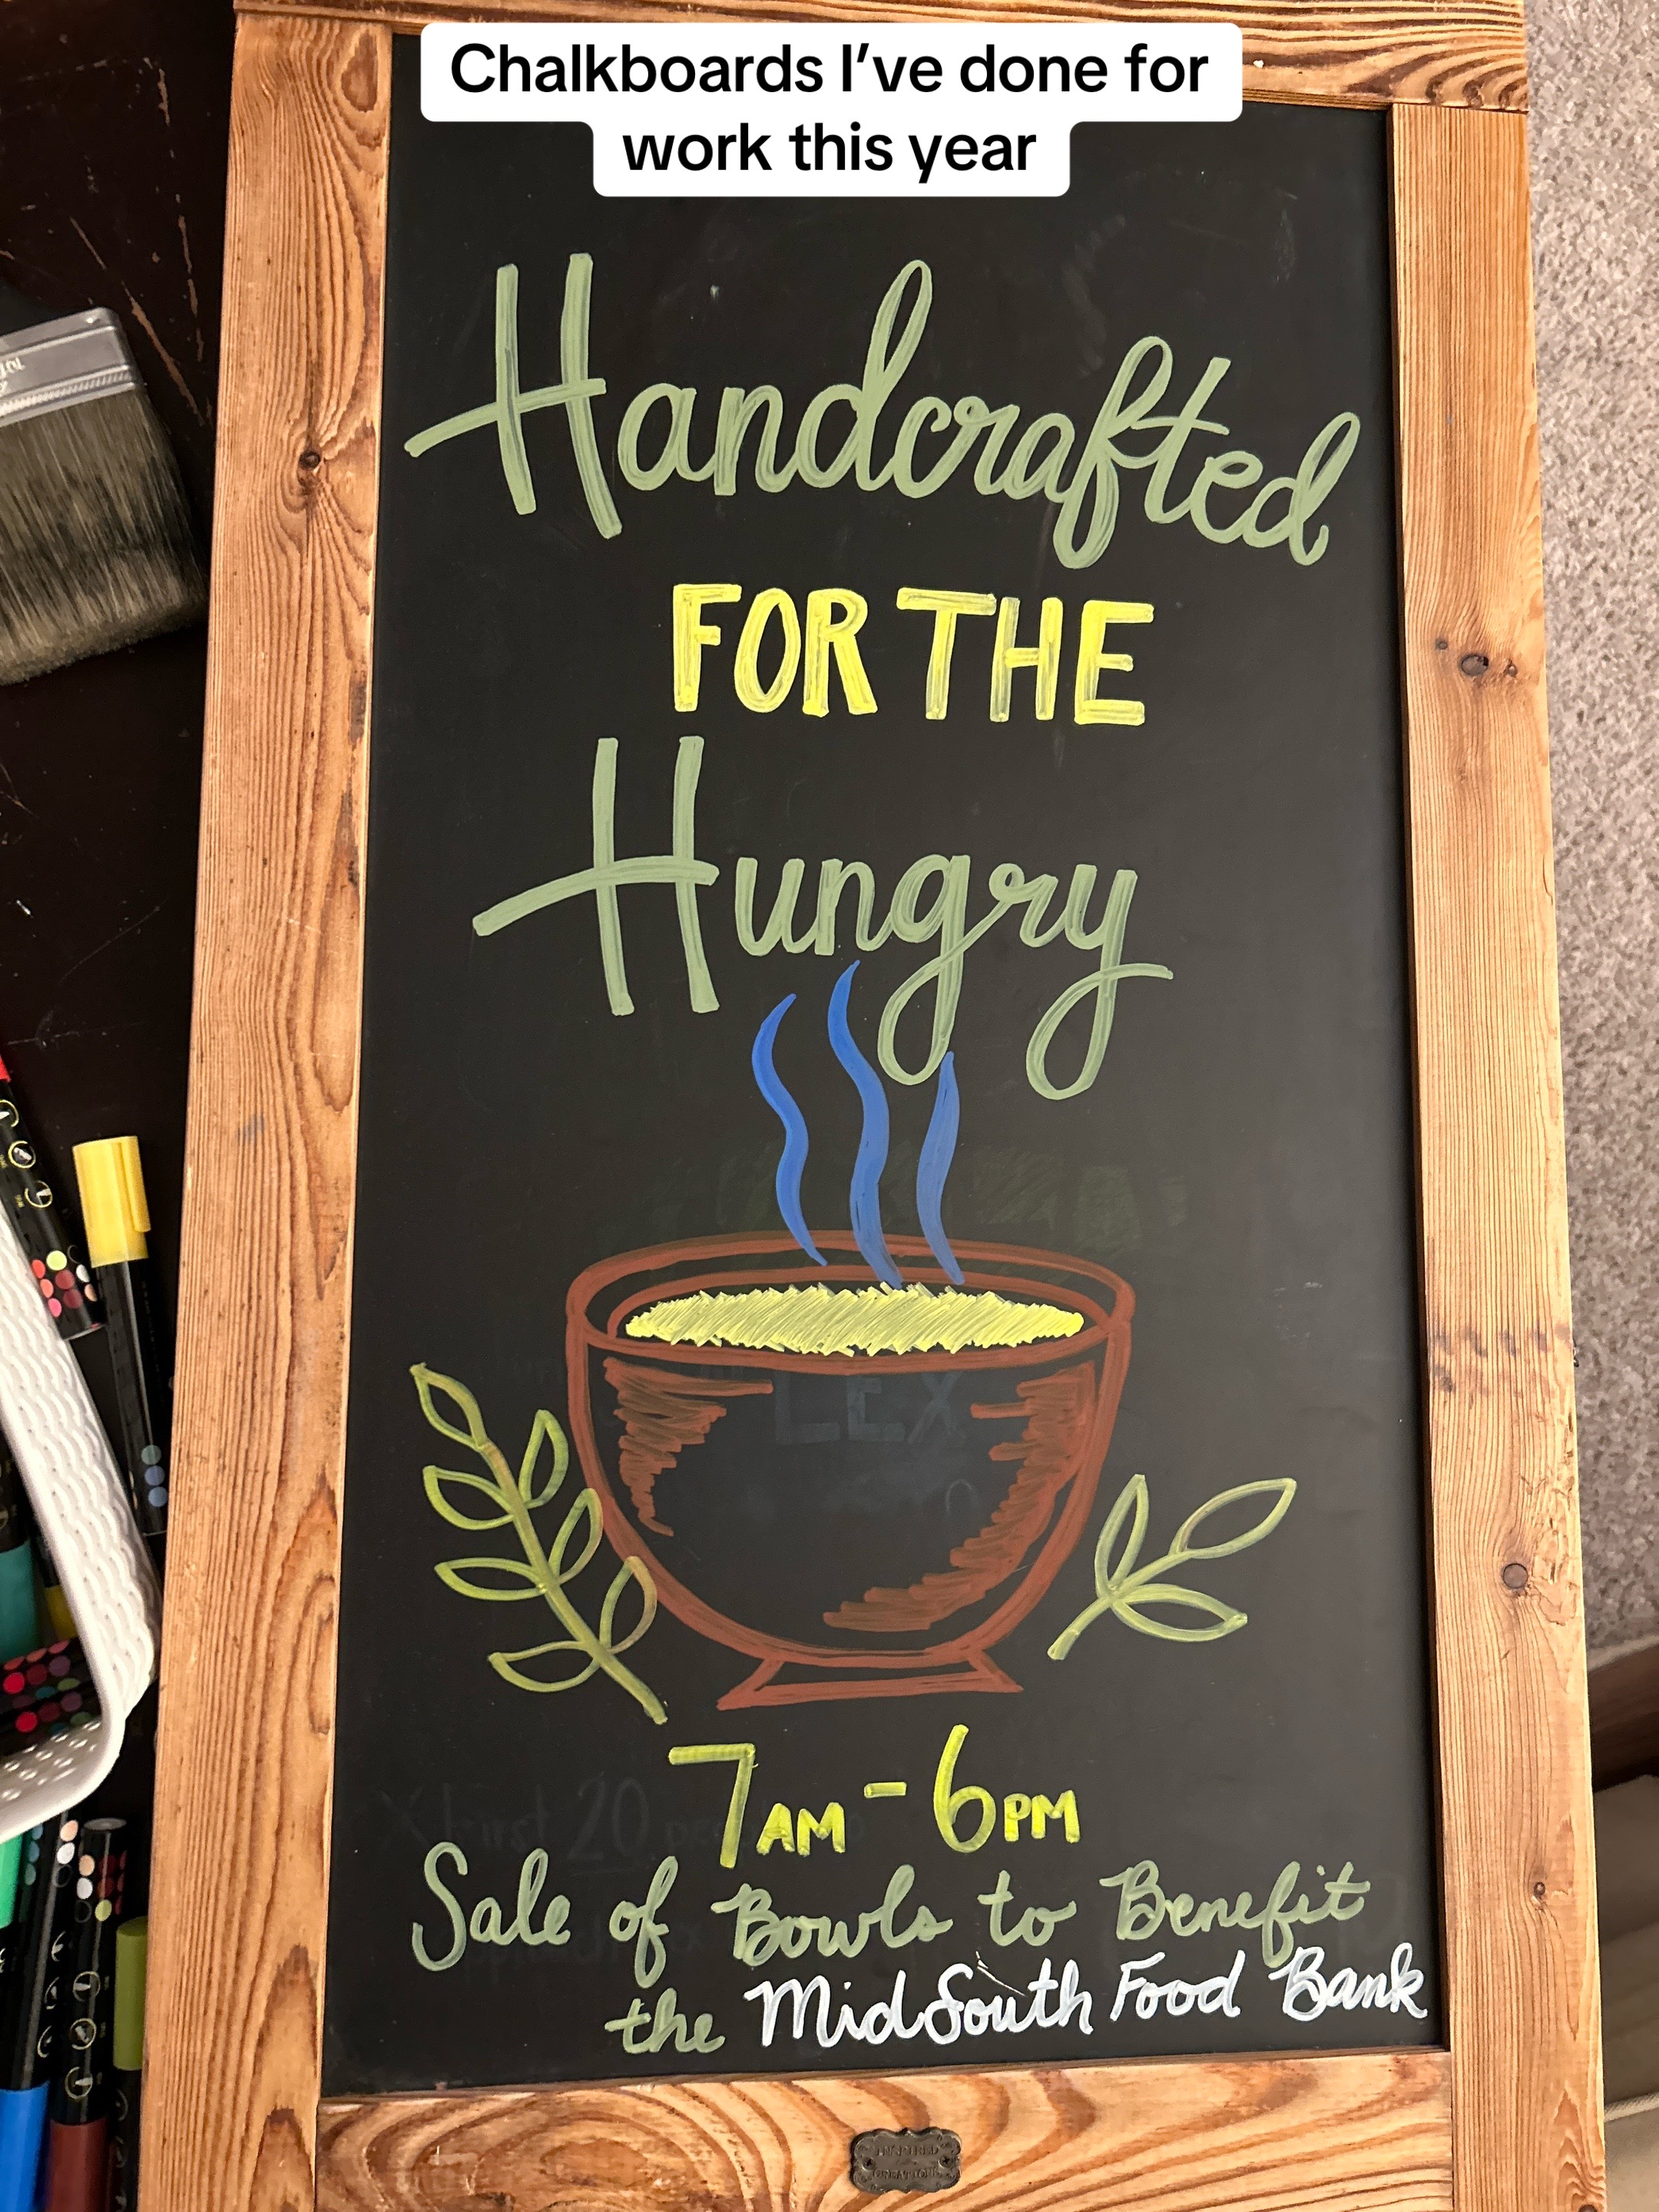 Chalkboards I've done for
work this year
Handcrafted
FOR THE
Hungry
LEX
First 20
7AM - 6PM
Sale of Bowls to Benefit
the MidSouth Food Bank